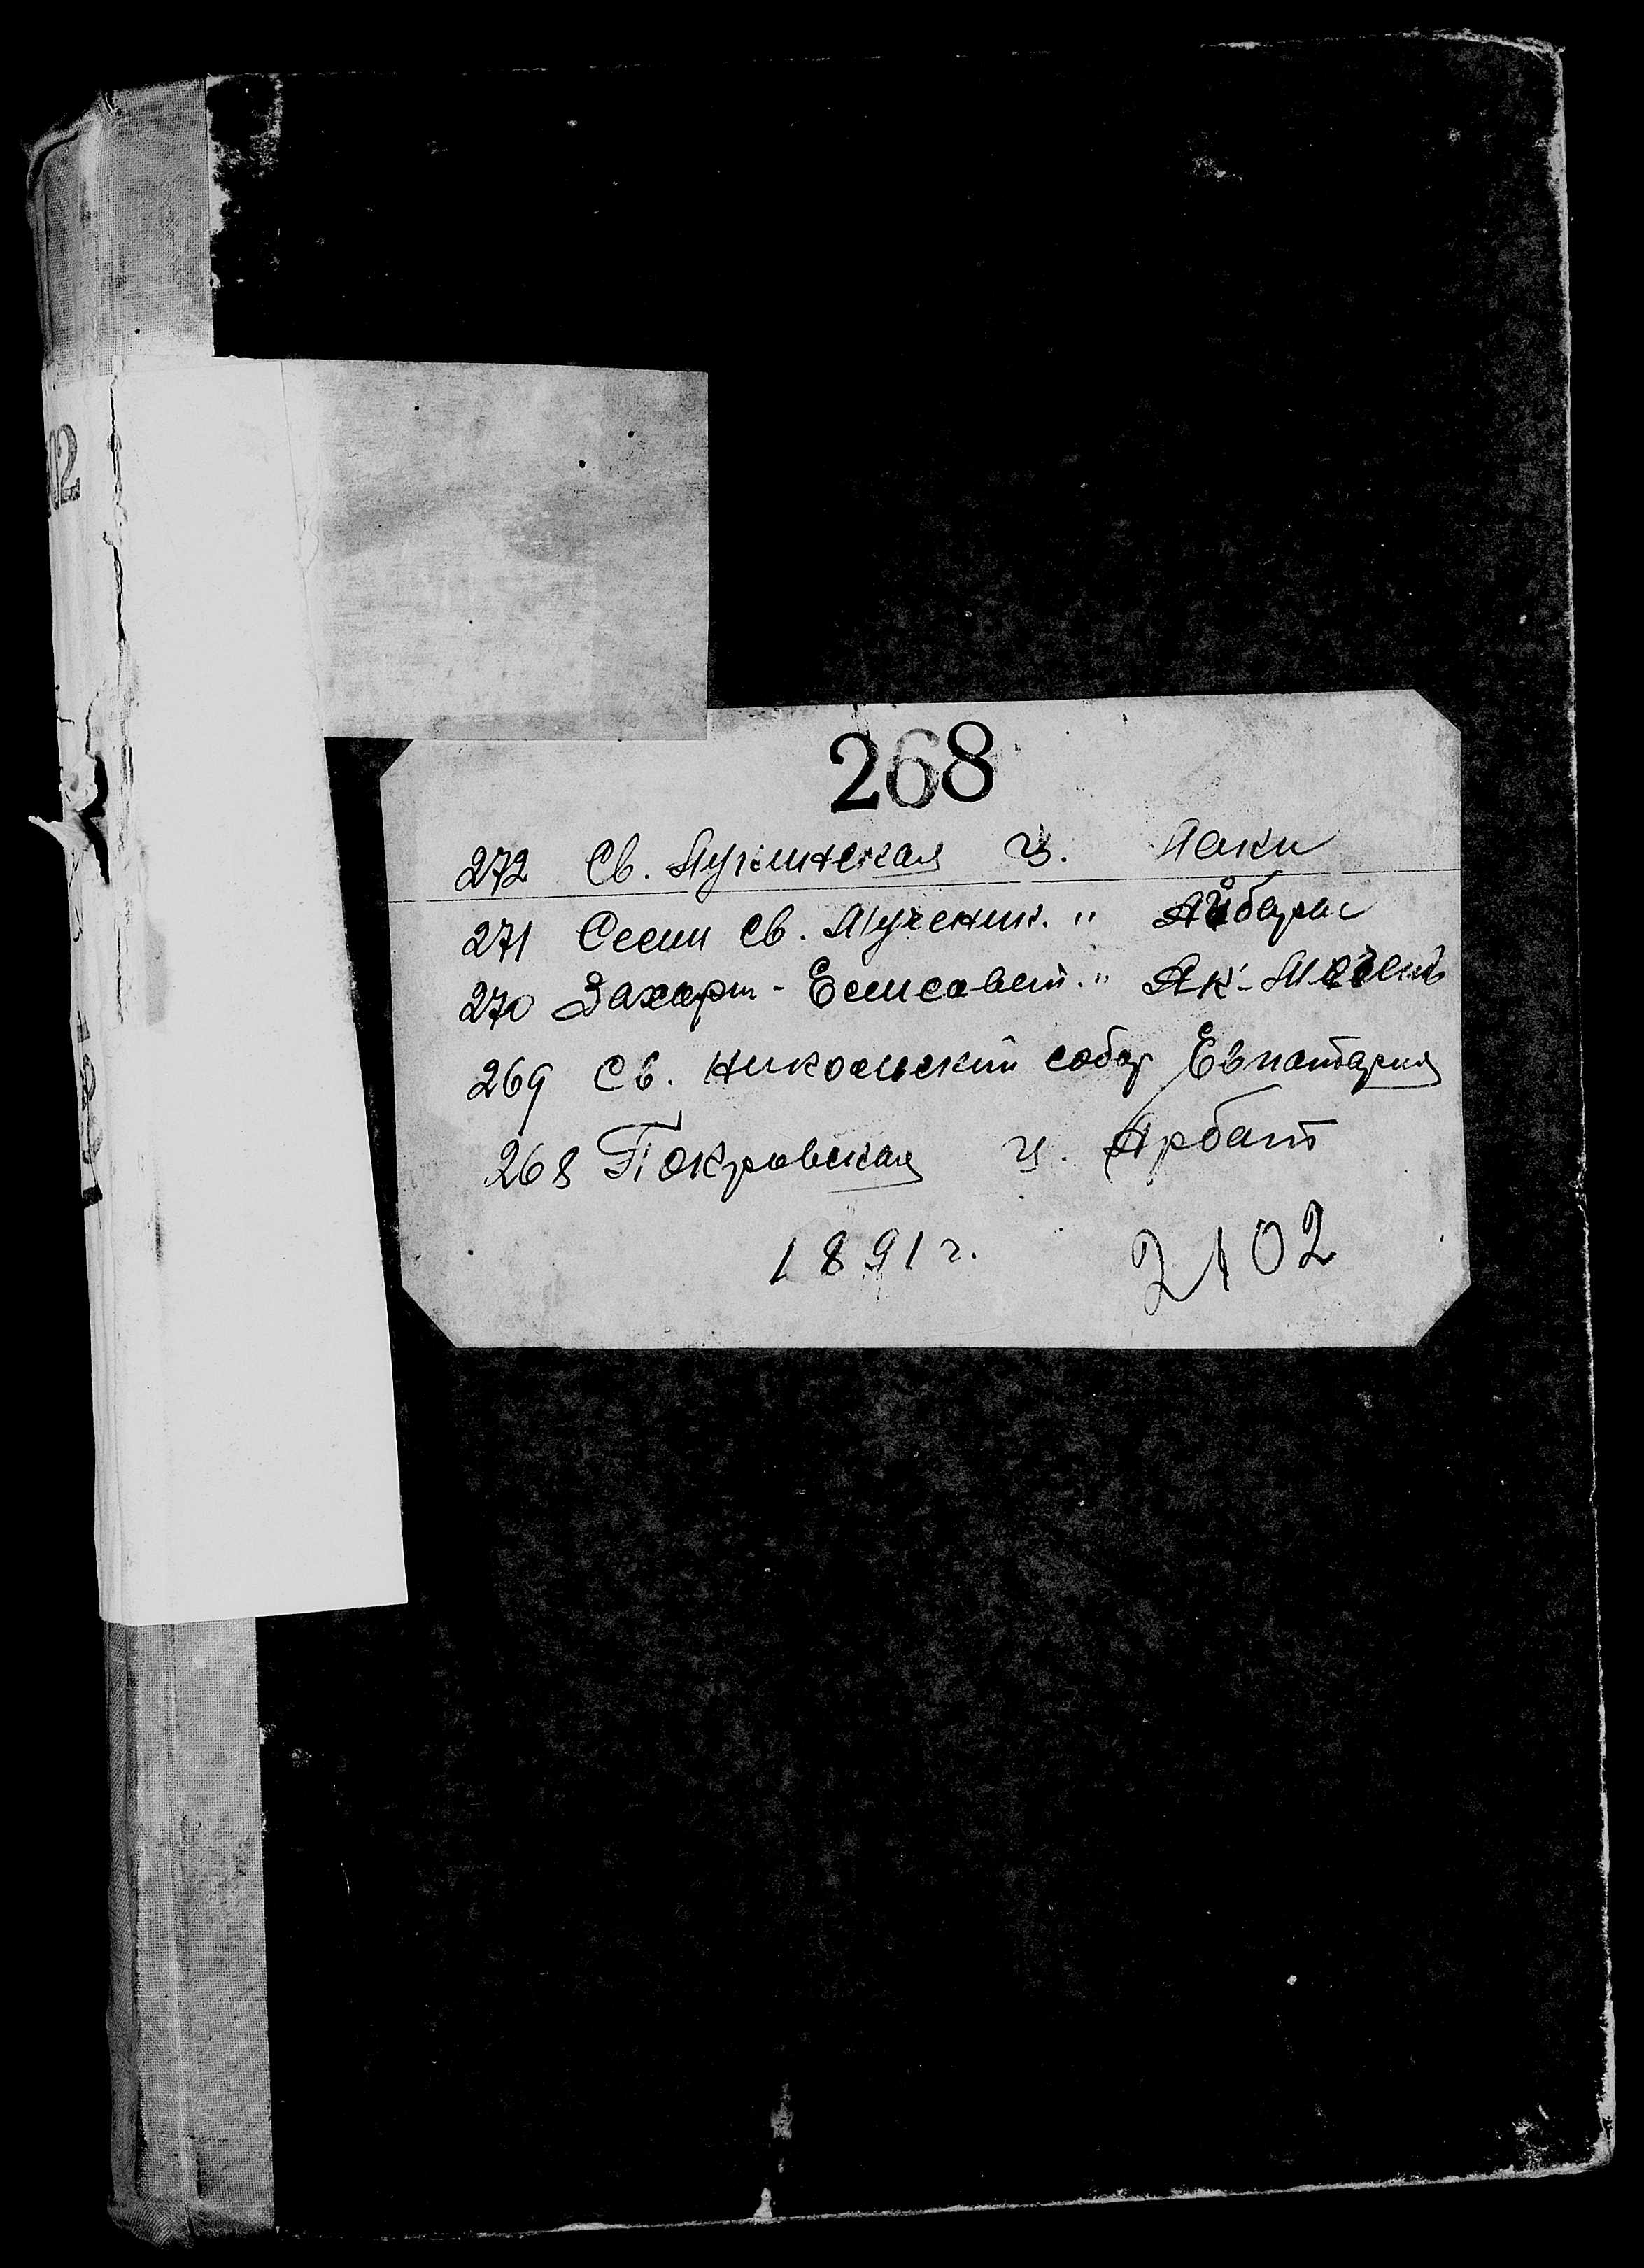 02
268
272 Св. Лукинская ц. Лаки
271 Семи Св. Мученик. " Айбары
270 Захари-Елисавет. " Ак-Мечеть
269 Св. Николаьский собор Евпатория
268 Покровская ц. Арбат
1891 г. 2102